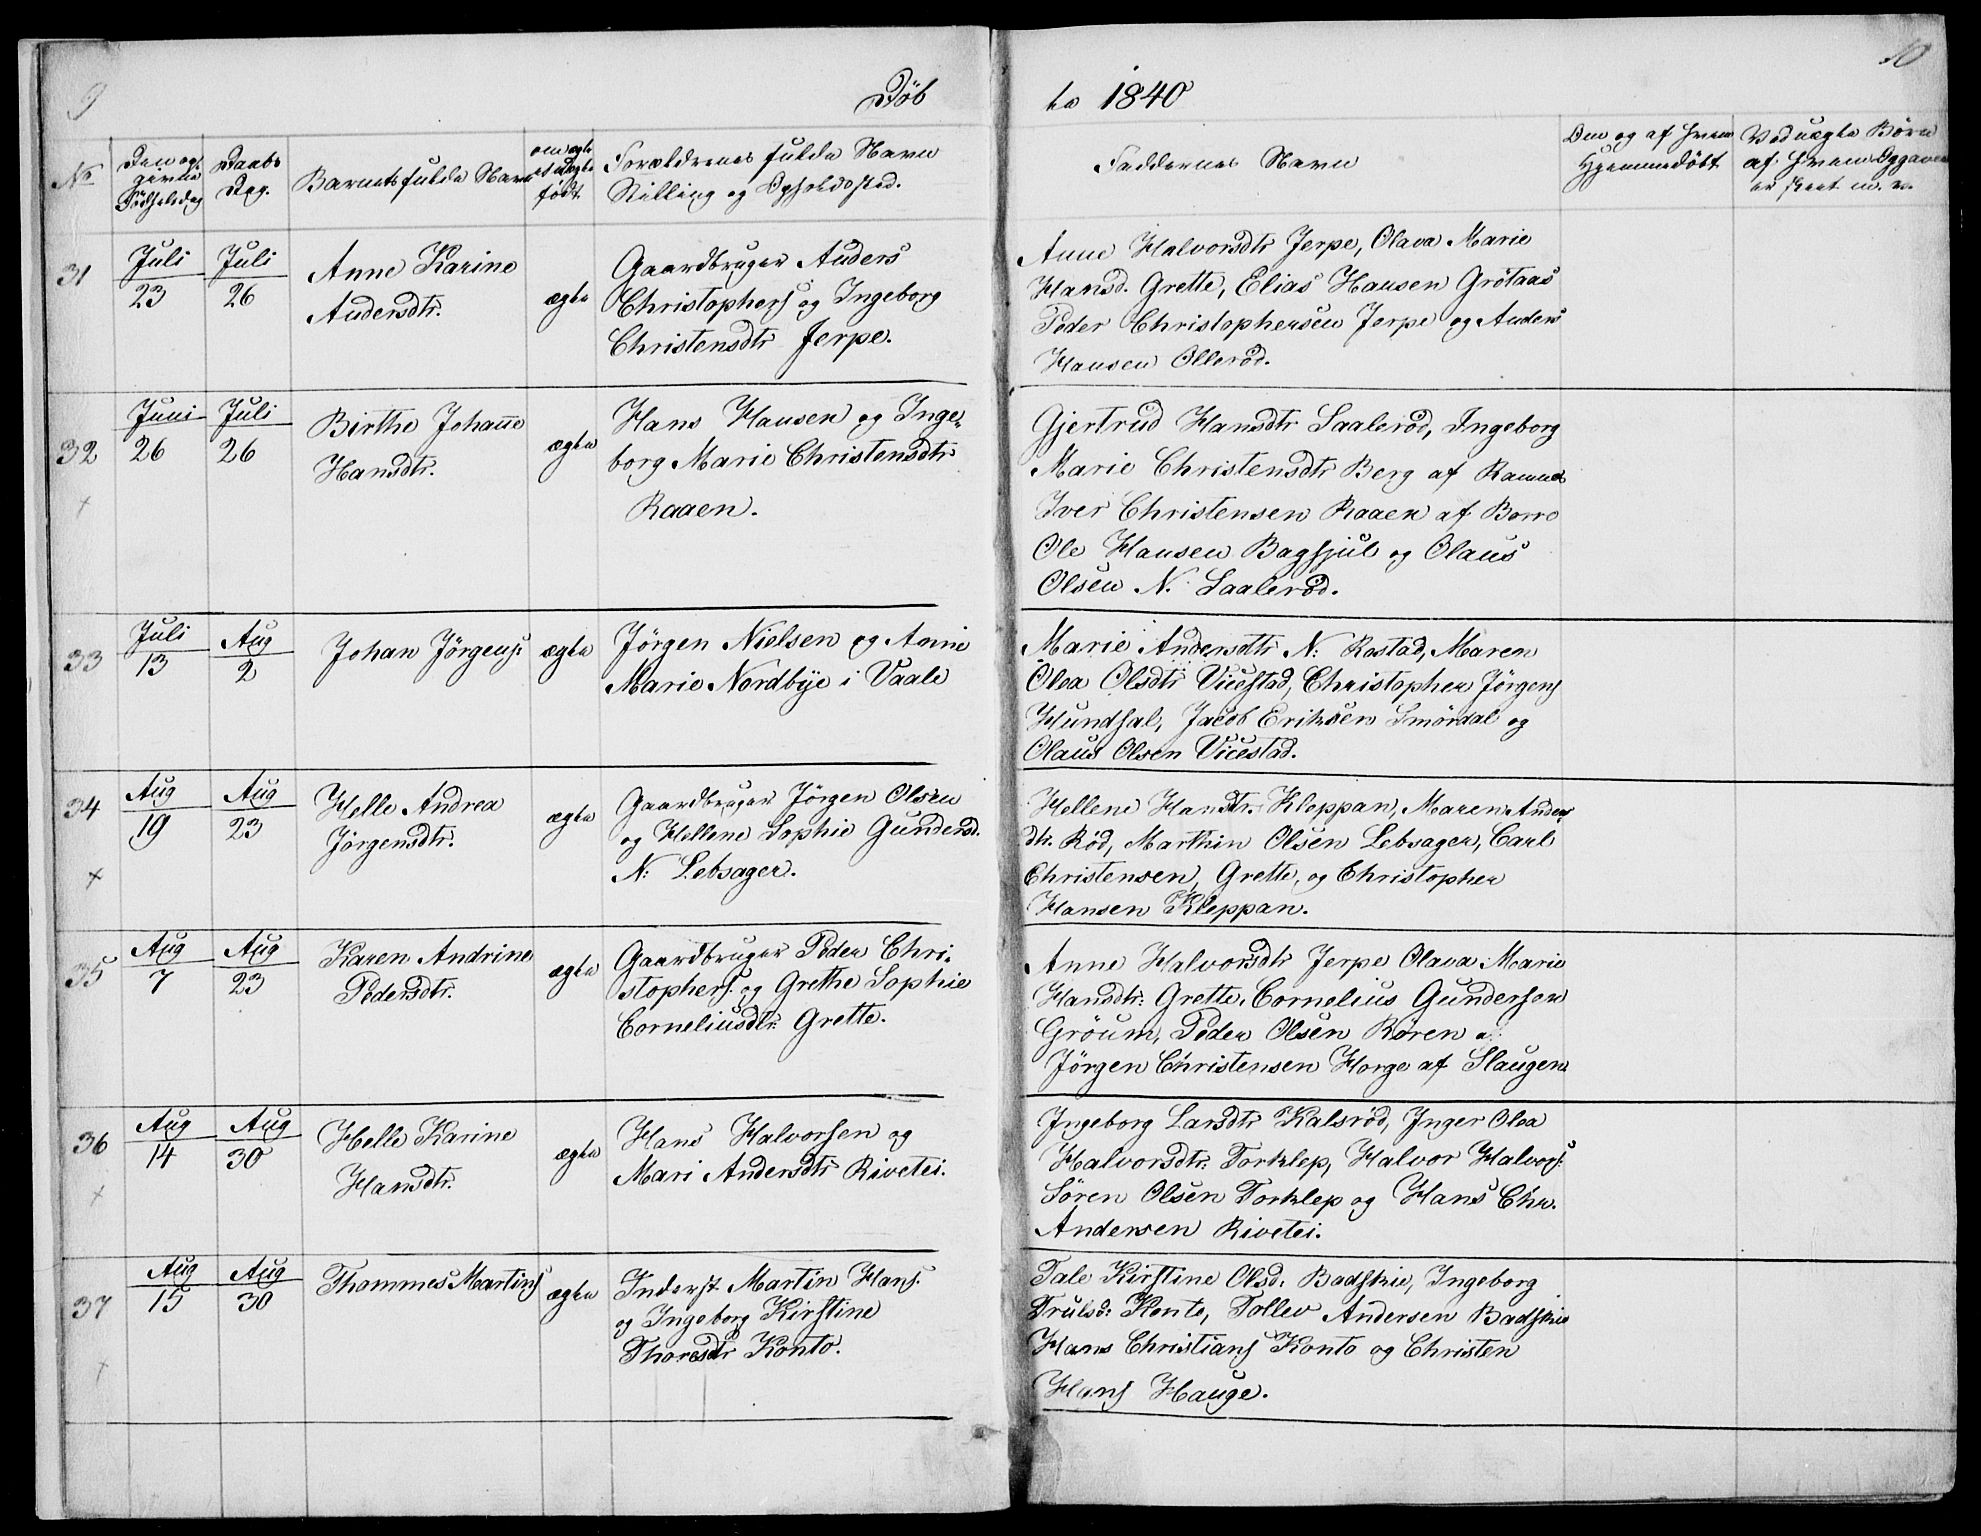 9
Döb
te 1840
10
No
Den opgivne Födselsdag
Daabs Dag.
Barnets fulde Navn
om ægte el. uægte født.
Forældrenes fulde Navn
Stilling og Opholdssted.
Faddernes Navn
Om og af hvem
Hjemmedöbt
Ved uægte Börn
af hvem Opgaven
er skeet m. v.
31
Juli 23
Juli 26
Anne Karine
Andersdtr.
ægte
Gaardbruger Anders
Christophers og Ingeborg
Christensdtr Jerpe.
Anne Halvorsdtr Jerpe, Olava Marie
Hansd. Grette, Elias Hansen Grötaas
Peder Christophersen Jerpe og Anders
Hansen Olleröd.
32
Juni 26
Juli 26
Birthe Johanne
Hansdtr.
ægte
Hans Hansen og Inge-
borg Marie Christensdtr
Raaen.
Gjertrud Hansdtr Saaleröd, Ingeborg
Marie Christensdtr Berg af Ramnes
Iver Christensen Raaen af Borre
Ole Hansen Bagfjul og Olaus
Olsen N. Saaleröd.
33
Juli 13
Aug 2
Johan Jörgens.
ægte
Jörgen Nielsen og Anne
Marie Nordbye i Vaale
Marie Andersdtr N: Rostad, Maren
Olea Olsdtr Vicestad, Christopher Jörgens
Hundsal, Jacob Eriksen Smördal og
Olaus Olsen Vicestad.
34
Aug 19
Aug 23
Helle Andrea
Jörgensdtr.
ægte
Gaardbruger Jörgen Olsen
og Hellene Sophie Gundersd.
N: Lebsager.
Hellene Hansdtr. Kleppan, Maren Anders
dtr. Röd, Marthin Olsen Lebsager, Carl
Christensen, Grette, og Christopher
Hansen Kleppan.
35
Aug 7
Aug 23
Karen Andrine
Pedersdtr.
ægte
Gaardbruger Peder Chri-
stophers. og Grethe Sophie
Corneliusdtr. Grette.
Anne Halvorsdtr Jerpe Olava Marie
Hansdtr: Grette, Cornelius Gundersen
Gröum, Peder Olsen Rören
Jörgen Christensen Horge af Slaugen
36
Aug 14
Aug 30
Helle Karine
Hansdtr.
ægte
Hans Halvorsen og
Mari Andersdtr Rivetei.
Ingeborg Larsdtr Kalsröd, Inger Olea
Halvorsdtr. Torklep, Halvor Halvors.
Sören Olsen Torklep og Hans Chr.
Andersen Rivetei.
37
Aug 15
Aug 30
Thommes Martins
ægte
Inderst Martin Hans.
og Ingeborg Kirstine
Thoresdtr Konto.
Tale Kirstine Olsd: Badskie, Ingeborg
Trulsd: Konto, Tollev Andersen Badskie
Hans Christians Konto og Christen
Hans Hauge.